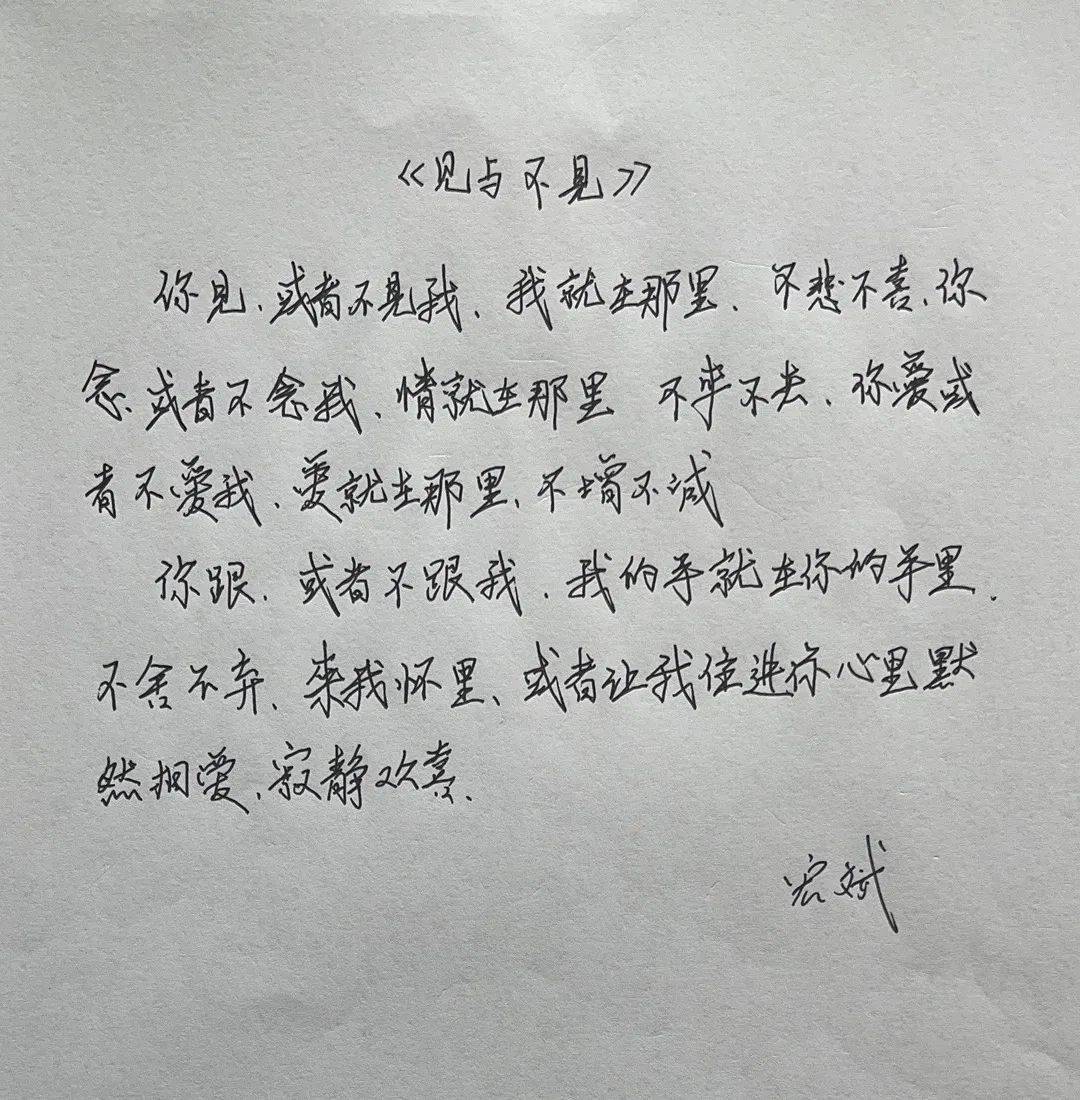 《见与不见》
你见，或者不见我，我就在那里，不悲不喜，你
念，或者不念我，情就在那里 不来不去，你爱或
者不爱我，爱就在那里，不增不减
你跟，或者不跟我，我的手就在你的手里，
不舍不弃，来我怀里，或者让我住进你心里默
然相爱，寂静欢喜。
宏斌